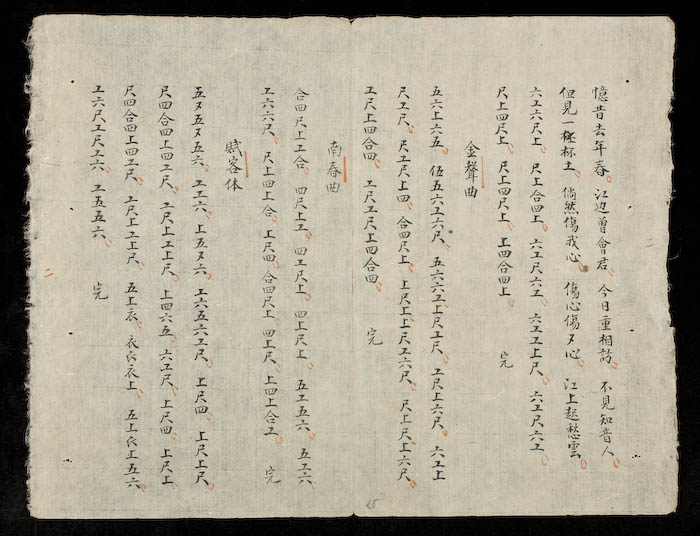 憶昔去年春 江边曾會君 今日重相訪 不見知音人
但見一杯土 傷我心 傷心傷又心 江上起愁雲
六工六尺上 尺上合四上 六工尺六工 六工工上尺 六工尺六工
尺上四尺上 尺上四尺上 上四合四上 完
金聲曲
五六上六五 伍五六工六尺 五六六工上尺工尺 工尺上六尺 六工上
尺工尺 尺工尺上四 合四尺上 上尺上上尺工六尺 尺上尺上六尺
工尺上四合四 工尺工尺上四合四 完
南春曲
合四尺上工合 四尺上工 四工尺上 四上尺上 五工五六 五工六
工六六尺 尺上四上合 上尺四 合四尺上 四上尺 上四上合工 完
賦客体
五又五又五六 工工六 上五又六 工六五六工尺 上尺四 上尺上尺
尺四合四上四工尺 工尺上工上尺 上四六五 六工尺 上尺四 上尺上
尺四合四上四工尺 工尺上工上尺 五上衣 衣衣衣上 五上衣上五六
工六尺工尺工六 工五五六 完
25